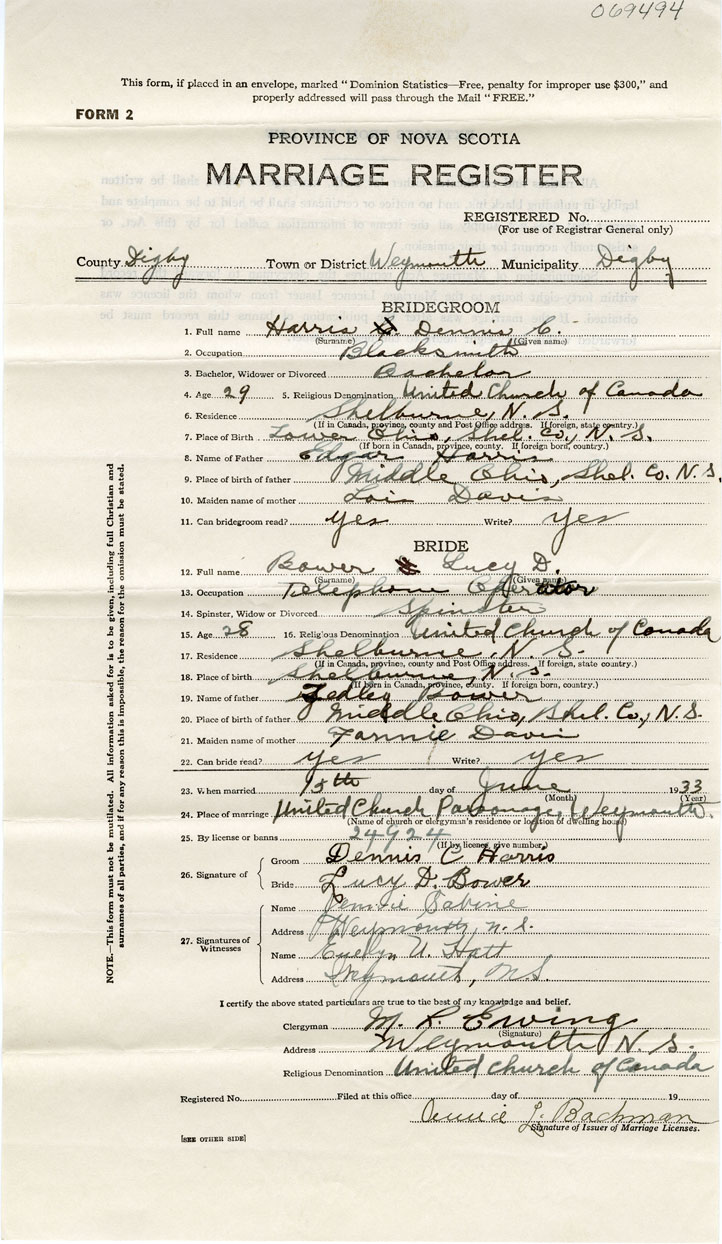 069494
This form, if placed in an envelope, marked "Dominion Statistics—Free, penalty for improper use $300," and
properly addressed will pass through the Mail "FREE."
FORM 2
PROVINCE OF NOVA SCOTIA
MARRIAGE REGISTER
REGISTERED No.
(For use of Registrar General only)
County Digby Town or District Weymouth Municipality Digby
BRIDEGROOM
1. Full name Harris Dennis C.
(Surname) (Given name)
2. Occupation Blacksmith
3. Bachelor, Widower or Divorced Bachelor
4. Age 29 5. Religious Denomination United Church of Canada
6. Residence Shelburne, N. S.
(If in Canada, province, county and Post Office address. If foreign, state country.)
7. Place of Birth Lower Ohio, Shel. Co., N. S.
(If born in Canada, province, county. If foreign born, country.)
8. Name of Father Edgar Harris
9. Place of birth of father Middle Ohio, Shel. Co. N. S.
10. Maiden name of mother Lois Davis
11. Can bridegroom read? yes Write? yes
BRIDE
12. Full name Bower Lucy D.
(Surname) (Given name)
13. Occupation Telephone Operator
14. Spinster, Widow or Divorced Spinster
15. Age 28 16. Religious Denomination United Church of Canada
17. Residence Shelburne, N. S.
(If in Canada, province, county and Post Office address. If foreign, state country.)
18. Place of birth Shelburne, N. S.
(If born in Canada, province, county. If foreign born, country.)
19. Name of father Zedley Bower
20. Place of birth of father Middle Ohio, Shel. Co., N. S.
21. Maiden name of mother Fannie Davis
22. Can bride read? yes Write? yes
23. When married 15th day of June 1933
(Month) (Year)
24. Place of marriage United Church Parsonage, Weymouth.
(Name of church or clergyman's residence or location of dwelling house)
25. By license or banns 24924
(If by license, give number)
26. Signature of
Groom Dennis C Harris
Bride Lucy D. Bower
27. Signatures of Witnesses
Name Sabine
Address Weymouth, N. S.
Name Evelyn U. Hatt
Address Weymouth, N.S.
I certify the above stated particulars are true to the best of my knowledge and belief.
Clergyman M. L. Ewing
(Signature)
Address Weymouth N. S.
Religious Denomination United Church of Canada
Registered No. Filed at this office day of 19
Annie L. Bachman
Signature of Issuer of Marriage Licenses.
[SEE OTHER SIDE]
NOTE.—This form must not be mutilated. All information asked for is to be given, including full Christian and
surnames of all parties, and if for any reason this is impossible, the reason for the omission must be stated.